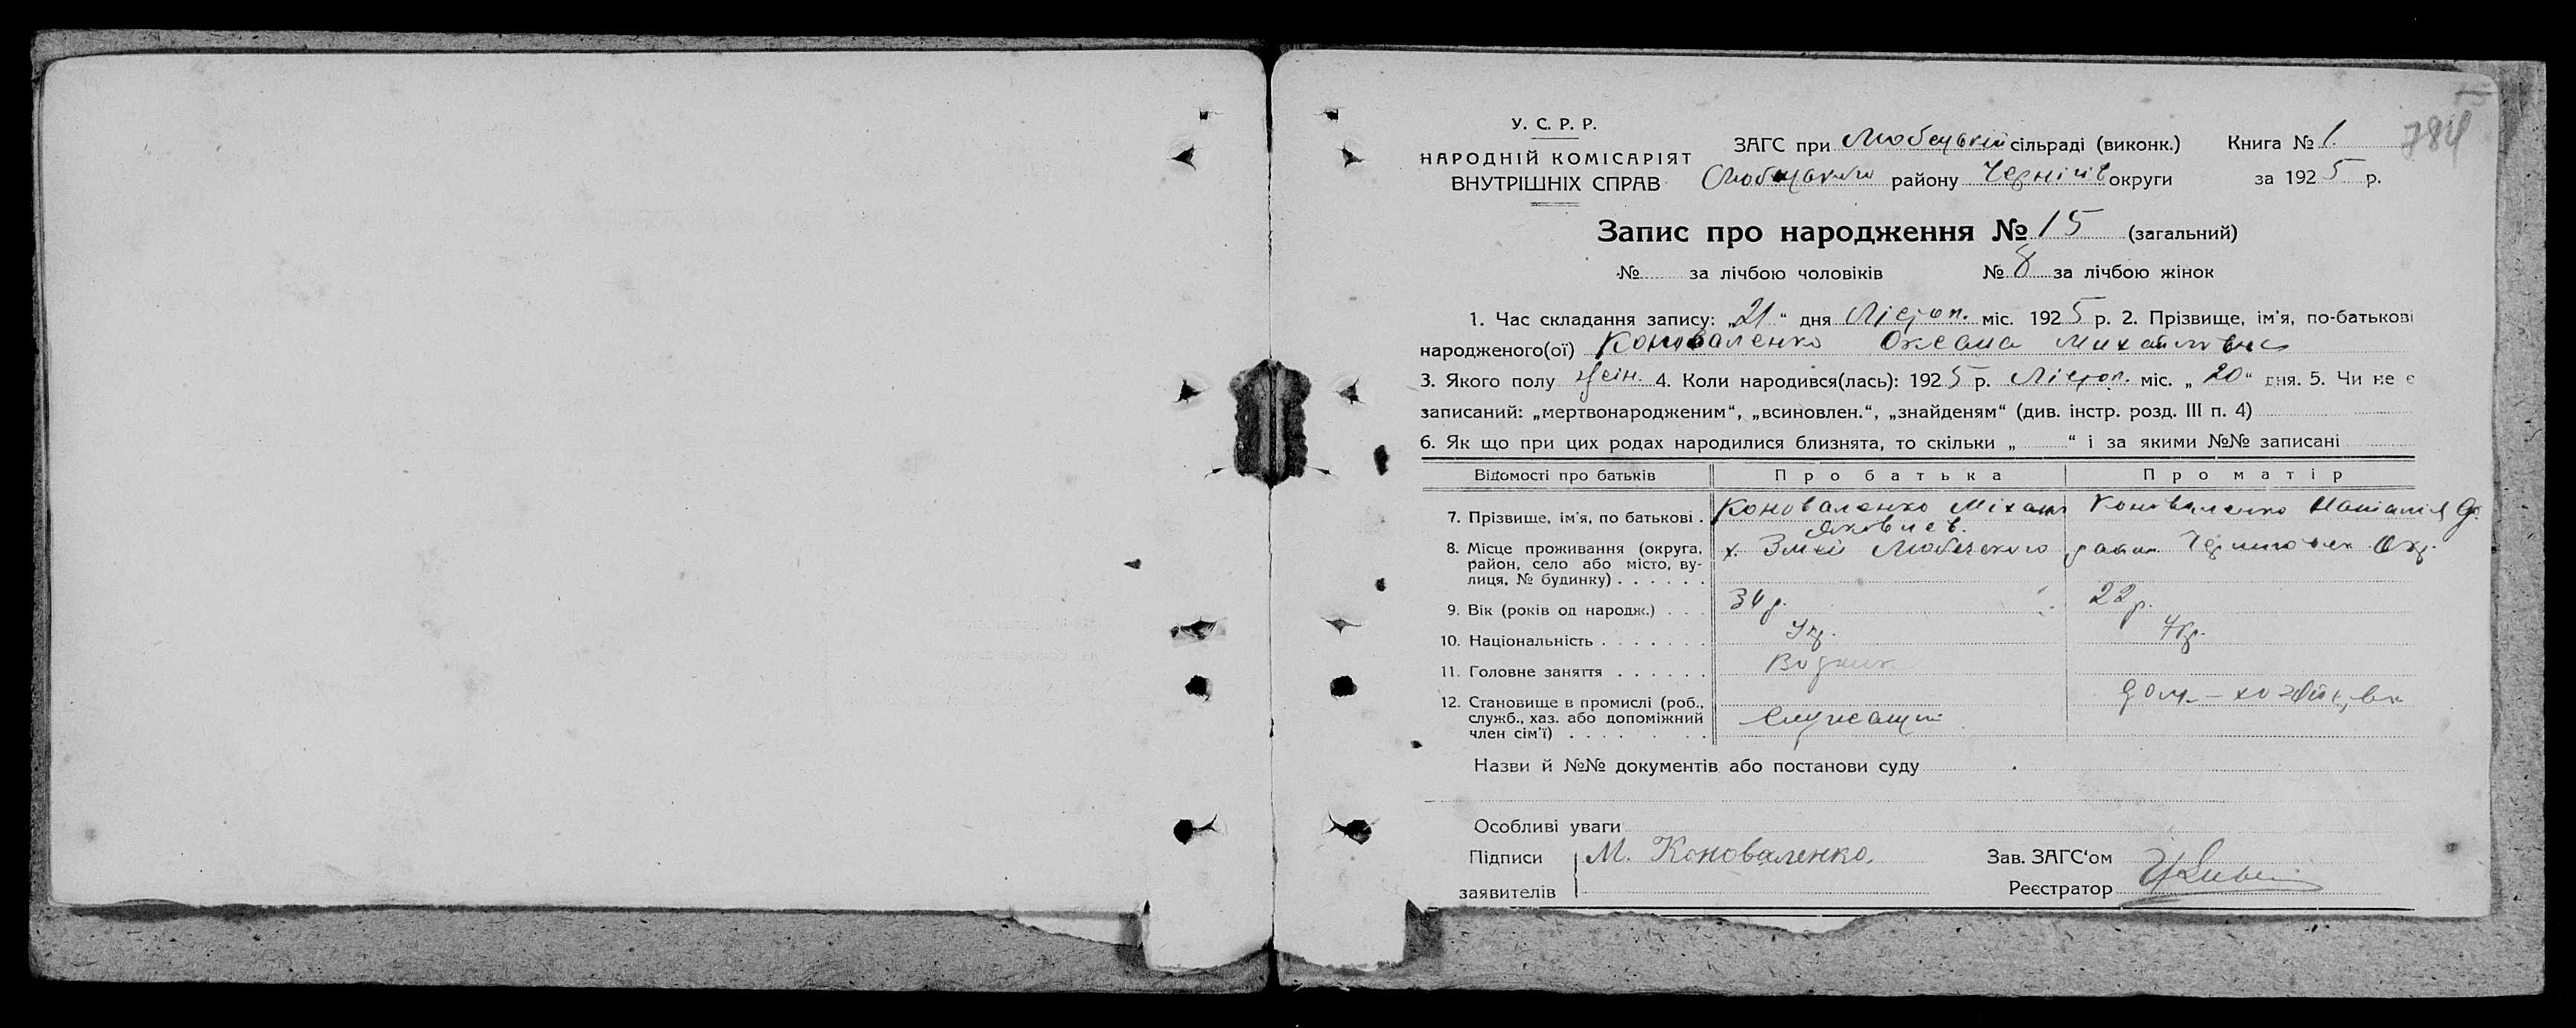 784
У. С. Р. Р.
НАРОДНІЙ КОМІСАРІЯТ
ВНУТРІШНІХ СПРАВ
ЗАГС при Любецькій сільраді (виконк.) Книга № 1.
Любецького району Чернігів округи за 1925 р.
Запис про народження № 15 (загальний)
№ за лічбою чоловіків № 8 за лічбою жінок
1. Час складання запису: „21“ дня Лістоп. міс. 1925 р. 2. Прізвище, ім'я, по-батькові
народженого(ої) Коноваленко Оксана Михайловна
3. Якого полу жін. 4. Коли народився(лась): 1925 р. Лістоп. міс. „20“ дня. 5. Чи не є
записаний: „мертвонародженим“, „всиновлен.“, „знайденям“ (див. інстр. розд. III п. 4)
6. Як що при цих родах народилися близнята, то скільки „ “ і за якими №№ записані
Відомості про батьків Про батька Про матір
7. Прізвище, ім'я, по батькові . Коноваленко Міхаил Яковлев. Коноваленко Наталія
8. Місце проживання (округа, район, село або місто, вулиця, № будинку) . . . . . . х. Змеї Любечского район Окр.
9. Вік (років од народж.) . . . 34 р. 22 р.
10. Національність . . . . . . . Укр. Укр.
11. Головне заняття . . . . . . Водник
12. Становище в промислі (роб., служб., хаз. або допоміжний член сім'ї) . . . . . . . . Служащий дом-хозяйка
Назви й №№ документів або постанови суду
Особливі уваги
Підписи М. Коноваленко. Зав. ЗАГС‘ом
заявителів Реєстратор